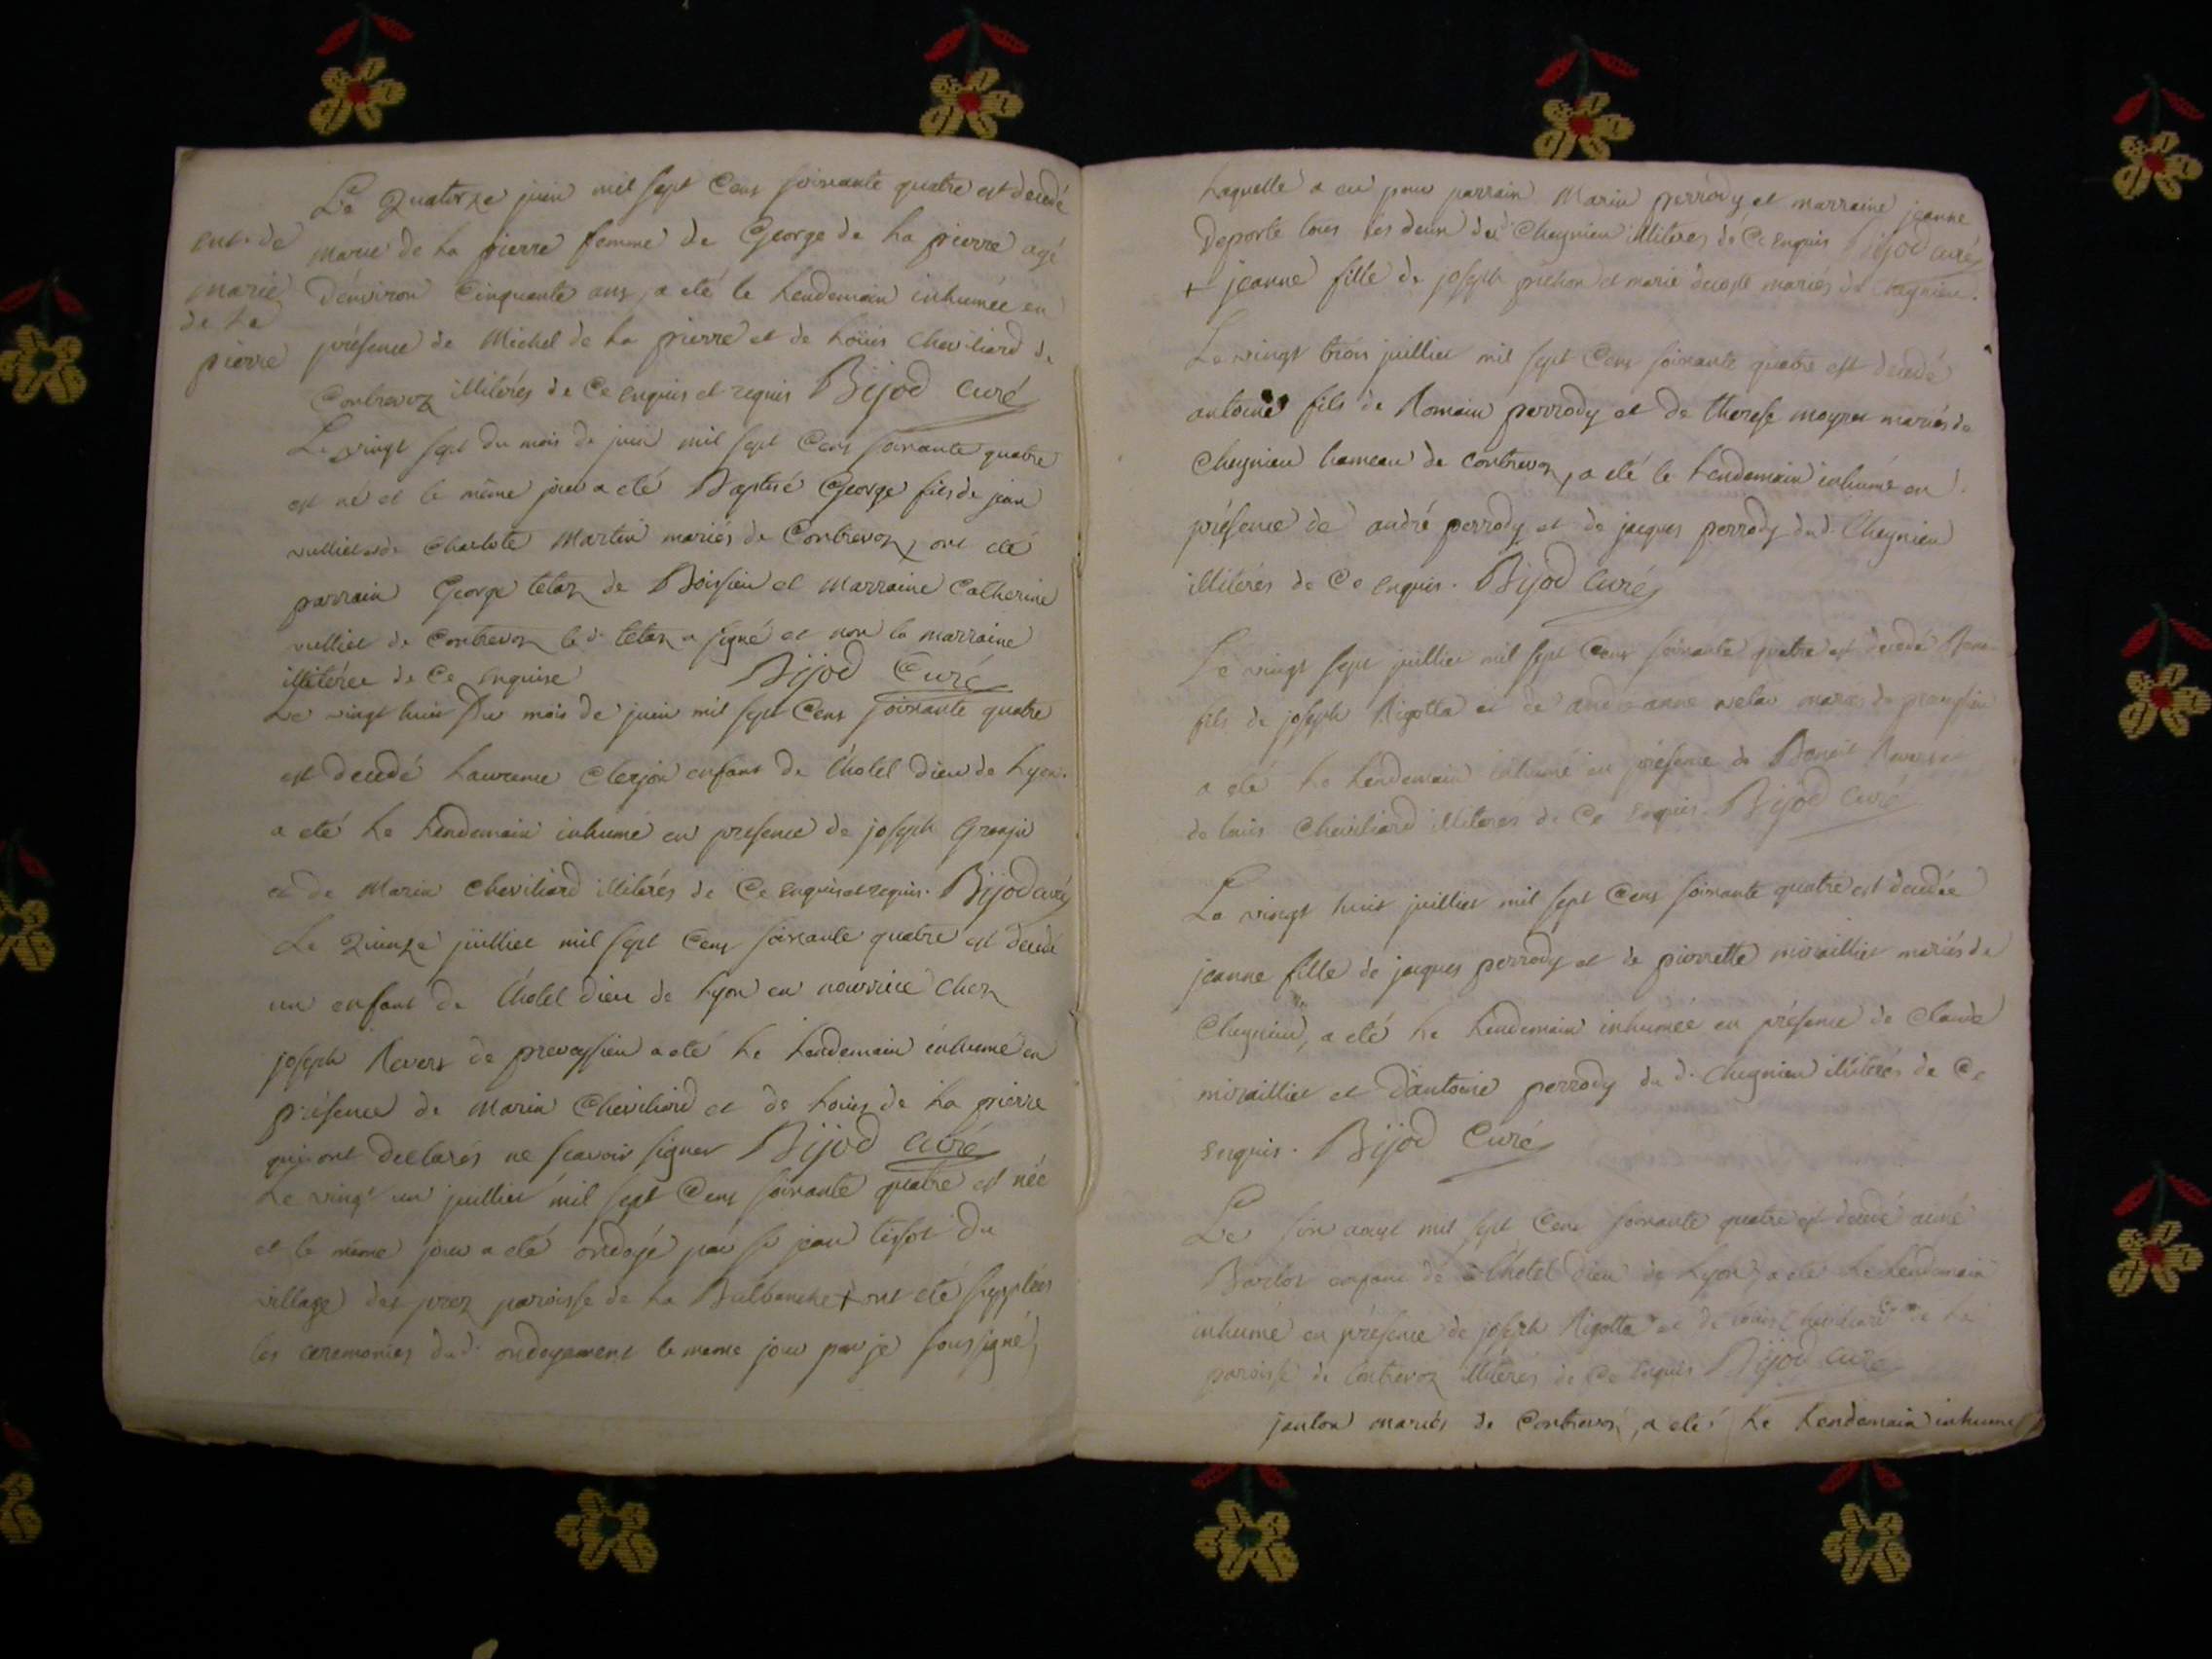 Le Quatorze juin mil sept Cens soixante quatre est decedé
ent. de
marie
de La
pierre
marie de La pierre femme de George de La pierre agé
d'environ Cinquante ans, a eté le Lendemain inhumée en
présence de Michel de La pierre et de Loüis Cheviliard de
Contrevoz illitérés de Ce enquis et requis Bijod Curé
Le vingt sept du mois de juin mil sept Cens soixante quatre
est né et le même jour a eté Baptisé George fils de jean
vulliet et de Charlote Martin mariés de Contrevoz, ont eté
parrain George tetaz de Boissieu et Marraine Catherine
vulliet de Contrevoz le d. tetaz a signé et non la marraine
illitérée de Ce enquise Bijod Curé
Le vingt huit Du mois de juin mil sept Cens soixante quatre
est decedé Laurence Clerjon enfant de l'hotel dieu de Lyon.
a eté Le Lendemain inhumé en presence de joseph Granju
et de Marin Cheviliard illitérés de Ce enquis et requis. Bijod curé
Le Quinze juilliet mil sept Cens soixante quatre est decedé
un enfant de l'hotel dieu de Lyon en nourrice Chez
joseph Ravers de preveyssieu a eté Le Lendemain inhumé en
présence de Marin Cheviliard et de Loüis de La pierre
qui ont declarés ne scavoir signer Bijod Curé
Le vingt un juilliet mil sept Cens soixante quatre est née
et le même jour a eté ondoyé par sr jean tissot du
village des prez paroisse de La Bulbanche + ont eté supplées
les ceremonies du d. ondoyement le meme jour par je soussigné,
Laquelle a eu pour parrain Marin perrody et marraine jeanne
Deporte tous les deux du d. Cheynieu illitérés de Ce enquis Bijod curé
+ jeanne fille de joseph prichon et marie mariés de Cheynieu.
Le vingt trois juilliet mil sept Cens soixante quatre est decedé
antoine fils de Romain perrody et de therese meyret mariés de
Cheynieu hameau de contrevoz, a eté le Lendemain inhumé en
présence de andré perrody et de jacques perrody du d. Cheynieu
illitérés de Ce enquis. Bijod Curé
Le vingt sept juilliet mil sept Cens soixante quatre est decedé
fils de joseph Rigotta et de anne velar mariés de
a eté Le Lendemain inhumé en présence de Benoit
de loüis Cheviliard illiterés de Ce enquis. Bijod Curé
Le vingt huit juilliet mil sept Cens soixante quatre est decedée
jeanne fille de jacques perrody et de pierrette miraillet mariés de
Cheynieu, a eté Le Lendemain inhumée en présence de Claude
miraillet et d'antoine perrody du d. Cheynieu illitérés de Ce
enquis. Bijod Curé
Le aoust mil sept Cens soixante quatre est decedé aimé
Barlot enfant de l'hotel dieu de Lyon, a eté Le Lendemain
inhumé en présence de joseph Rigotta et de loüis Cheviliard de La
paroisse de Contrevoz illitérés de Ce enquis Bijod curé
janton mariés de Contrevoz, a eté Le Lendemain inhumé